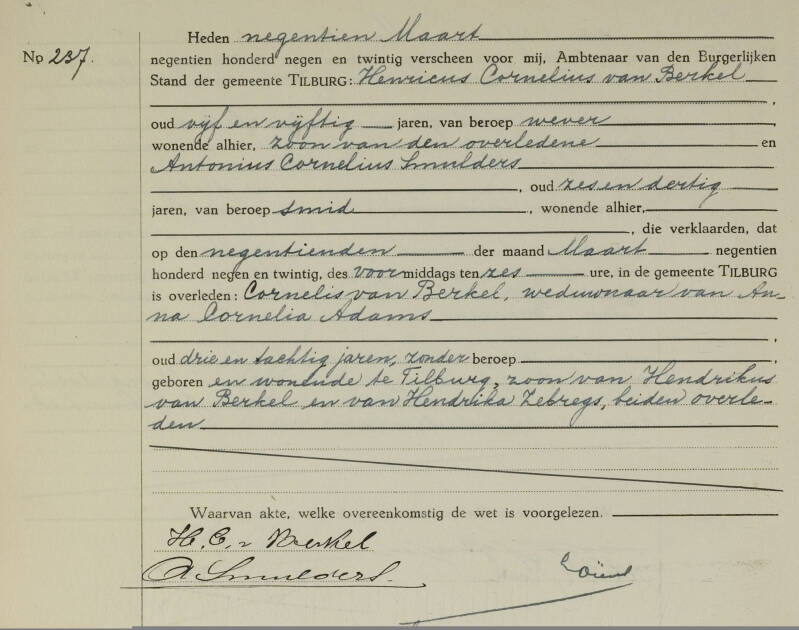 Heden negentien Maart
No 237.
negentien honderd negen en twintig verscheen voor mij, Ambtenaar van den Burgerlijken
Stand der gemeente TILBURG: Henricus Cornelius van Berkel
,
oud vijf en vijftig jaren, van beroep wever,
wonende alhier, zoon van den overledene en
Antonius Cornelius Smulders
, oud zes en dertig
jaren, van beroep smid, wonende alhier,
, die verklaarden, dat
op den negentienden der maand Maart negentien
honderd negen en twintig, des voormiddags ten zes ure, in de gemeente TILBURG
is overleden: Cornelis van Berkel, weduwnaar van An-
na Cornelia Adams
,
oud drie en tachtig jaren, zonder beroep,
geboren en wonende te Tilburg, zoon van Hendrikus
van Berkel en van Hendrika Zebregs, beiden overle-
den
Waarvan akte, welke overeenkomstig de wet is voorgelezen.
H. C. v Berkel
A Smulders.